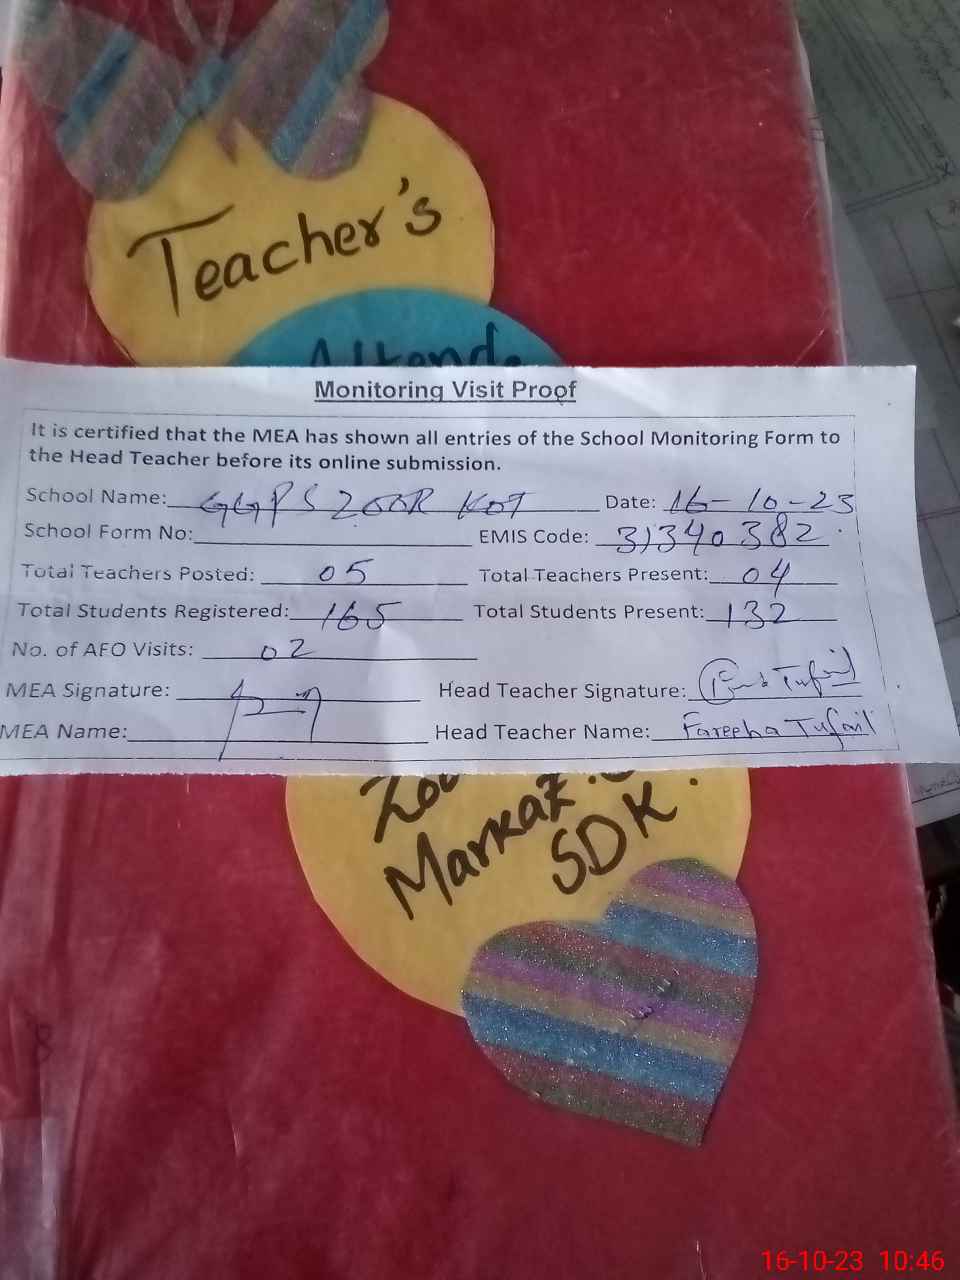 Teacher's
Attend
Monitoring Visit Proof
It is certified that the MEA has shown all entries of the School Monitoring Form to
the Head Teacher before its online submission.
School Name: GGPS ZOOR KOT Date: 16-10-23
School Form No: EMIS Code: 31340382
Total Teachers Posted: 05 Total Teachers Present: 04
Total Students Registered: 165 Total Students Present: 132
No. of AFO Visits: 02
MEA Signature: Head Teacher Signature: Tufail
MEA Name: Head Teacher Name: Fareeha Tufail
Markaz
SDK.
16-10-23 10:46